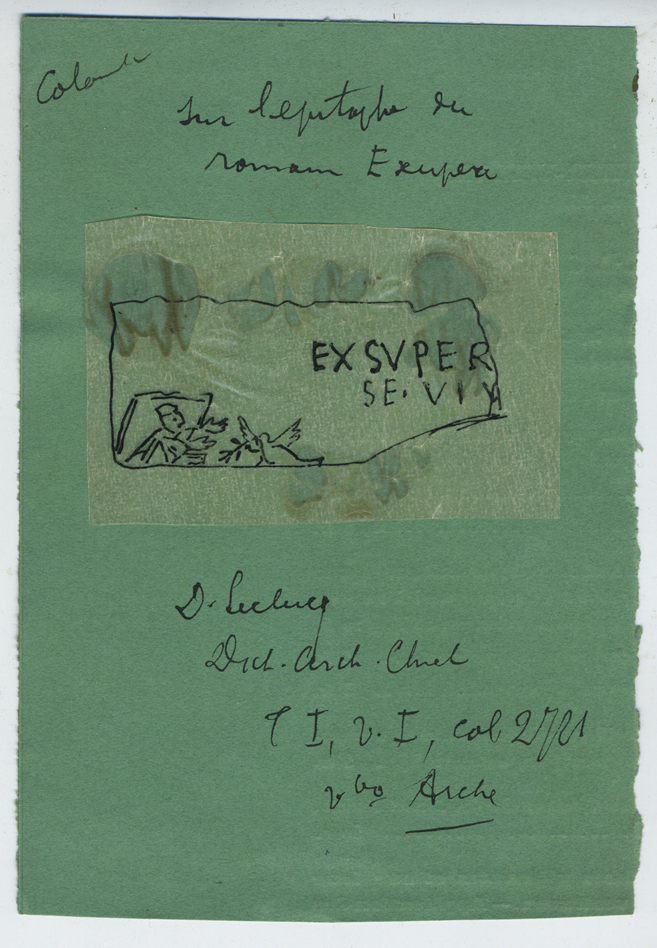 sur l'epitaphe du
romain Exupere
EXSVPER
SE. VIX
D. Leclercq
Dict. Arch. Chret
T I, v. I, col 2721
vbo Arche